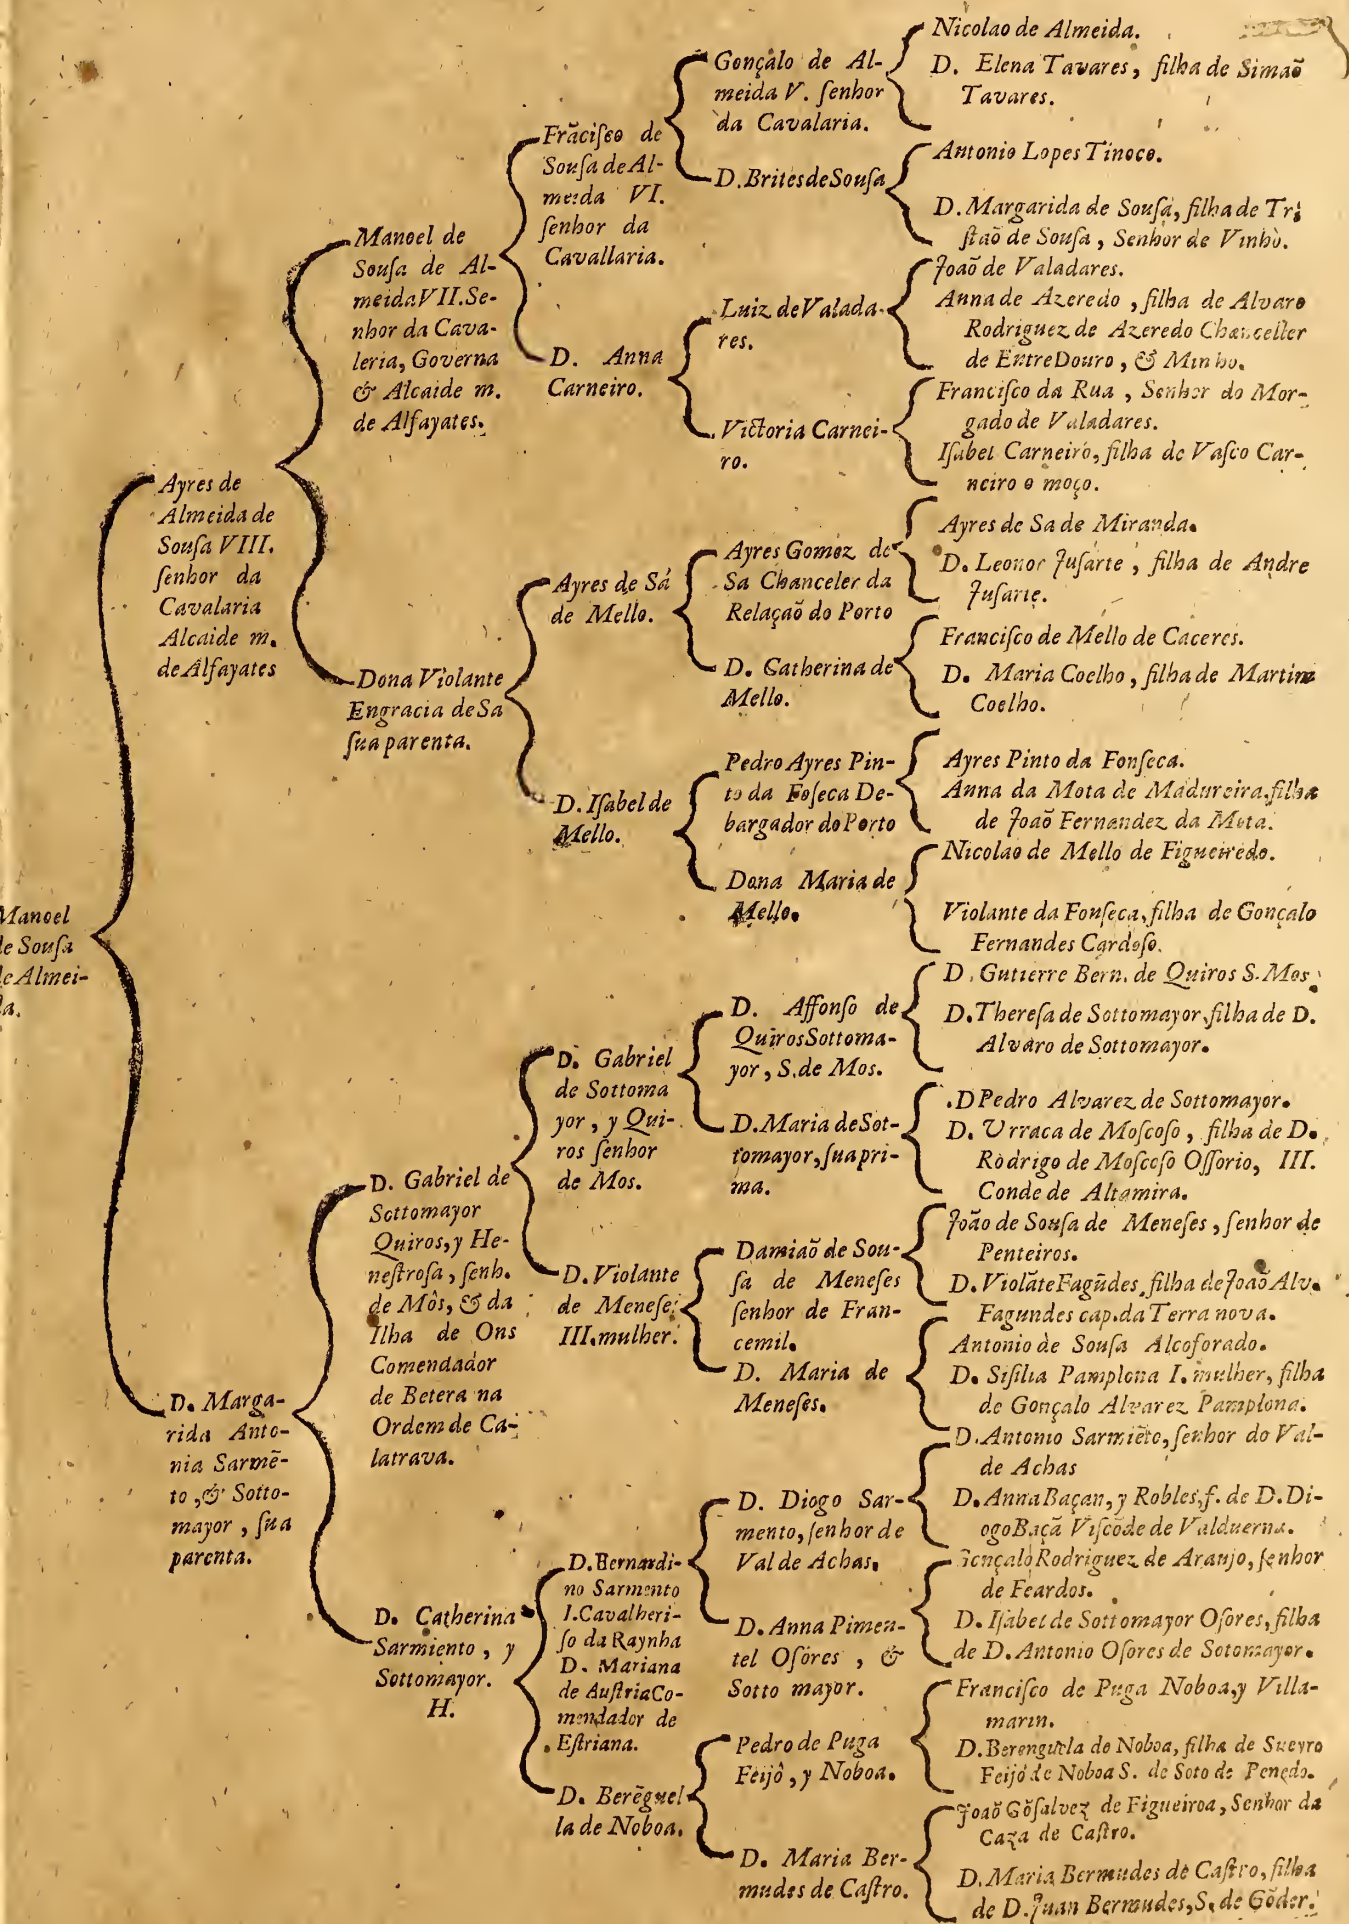 Manoel
de Sousa
de Almei-
da.
Ayres de
Almeida de
Souſa VIII.
ſenhor da
Cavalaria
Alcaide m.
de Alfayates
D. Marga-
rida Anto-
nia Sarmẽ-
to, & Sotto-
mayor, ſua
parenta.
Manoel de
Souſa de Al-
meida VII. Se-
nhor da Cava-
leria, Governa
& Alcaide m.
de Alfayates.
Dona Violante
Engracia de Sa
ſua parenta.
D. Gabriel de
Sottomayor
Quiros, y He-
neſtroſa, ſenh.
de Môs, & da
Ilha de Ons
Comendador
de Betera na
Ordem de Ca-
latrava.
D. Catherina
Sarmiento, y
Sottomayor.
H.
Frãciſco de
Souſa de Al-
meida VI.
ſenhor da
Cavallaria.
D. Anna
Carneiro.
Ayres de Sá
de Mello.
D. Iſabel de
Mello.
D. Gabriel
de Sottoma
yor, y Qui-
ros ſenhor
de Mos.
D. Violante
de Meneſe.
III. mulher.
D. Bernardi-
no Sarmento
I. Cavalheri-
ſo da Raynha
D. Mariana
de Auſtria Co-
mendador de
Eſtriana.
D. Berẽguel
la de Noboa.
Gonçalo de Al-
meida V. ſenhor
da Cavalaria.
D. Brites de Souſa
Luiz de Valada-
res.
Victoria Carnei-
ro.
Ayres Gomez de
Sa Chanceler da
Relaçaõ do Porto
D. Catherina de
Mello.
Pedro Ayres Pin-
to da Foſeca De-
bargador do Porto
Dona Maria de
Mello.
D. Affonſo de
Quiros Sottoma-
yor, S. de Mos.
D. Maria de Sot-
tomayor, ſua pri-
ma.
Damiaõ de Sou-
ſa de Meneſes
ſenhor de Fran-
cemil.
D. Maria de
Meneſes.
D. Diogo Sar-
mento, ſenhor de
Val de Achas.
D. Anna Pimen-
tel Oſores, &
Sotto mayor.
Pedro de Puga
Feijô, y Noboa.
D. Maria Ber-
mudes de Caſtro.
Nicolao de Almeida.
D. Elena Tavares, filha de Simaõ
Tavares.
Antonio Lopes Tinoco.
D. Margarida de Souſa, filha de Tri
ſtaõ de Souſa, Senhor de Vinhò.
Joaõ de Valadares.
Anna de Azeredo, filha de Alvaro
Rodriguez de Azeredo Chanceller
de Entre Douro, & Minho.
Franciſco da Rua, Senhor do Mor-
gado de Valadares.
Iſabel Carneiro, filha de Vaſco Car-
neiro o moço.
Ayres de Sa de Miranda.
D. Leonor Juſarte, filha de Andre
Juſarte.
Franciſco de Mello de Caceres.
D. Maria Coelho, filha de Martim
Coelho.
Ayres Pinto da Fonſeca.
Anna da Mota de Madureira, filha
de Joaõ Fernandez da Mota.
Nicolao de Mello de Figueiredo.
Violante da Fonſeca, filha de Gonçalo
Fernandes Cardoſo.
D. Gutierre Bern. de Quiros S. Mos
D. Thereſa de Sottomayor, filha de D.
Alvaro de Sottomayor.
.D Pedro Alvarez de Sottomayor.
D. Urraca de Moſcoſo, filha de D.
Rodrigo de Moſcoſo Oſſorio, III.
Conde de Altamira.
João de Souſa de Meneſes, ſenhor de
Penteiros.
D. Violãte Fagũdes, filha de Joaõ Alv.
Fagundes cap. da Terra nova.
Antonio de Souſa Alcoforado.
D. Siſilia Pamplona I. mulher, filha
de Gonçalo Alvarez Pamplona.
D. Antonio Sarmiẽto, ſenhor do Val-
de Achas
D. Anna Baçan, y Robles, f. de D. Di-
ogo Baçã Viſcõde de Valduerna.
Gonçalo Rodriguez de Araujo, ſenhor
de Feardos.
D. Iſabel de Sottomayor Oſores, filha
de D. Antonio Oſores de Sotomayor.
Franciſco de Puga Noboa, y Villa-
marin.
D. Berenguela de Noboa, filha de Sueyro
Feijó de Noboa S. de Soto de Penedo.
Joaõ Gõſalvez de Figueiroa, Senhor da
Caza de Caſtro.
D. Maria Bermudes de Caſtro, filha
de D. Juan Bermudes, S. de Gõder.